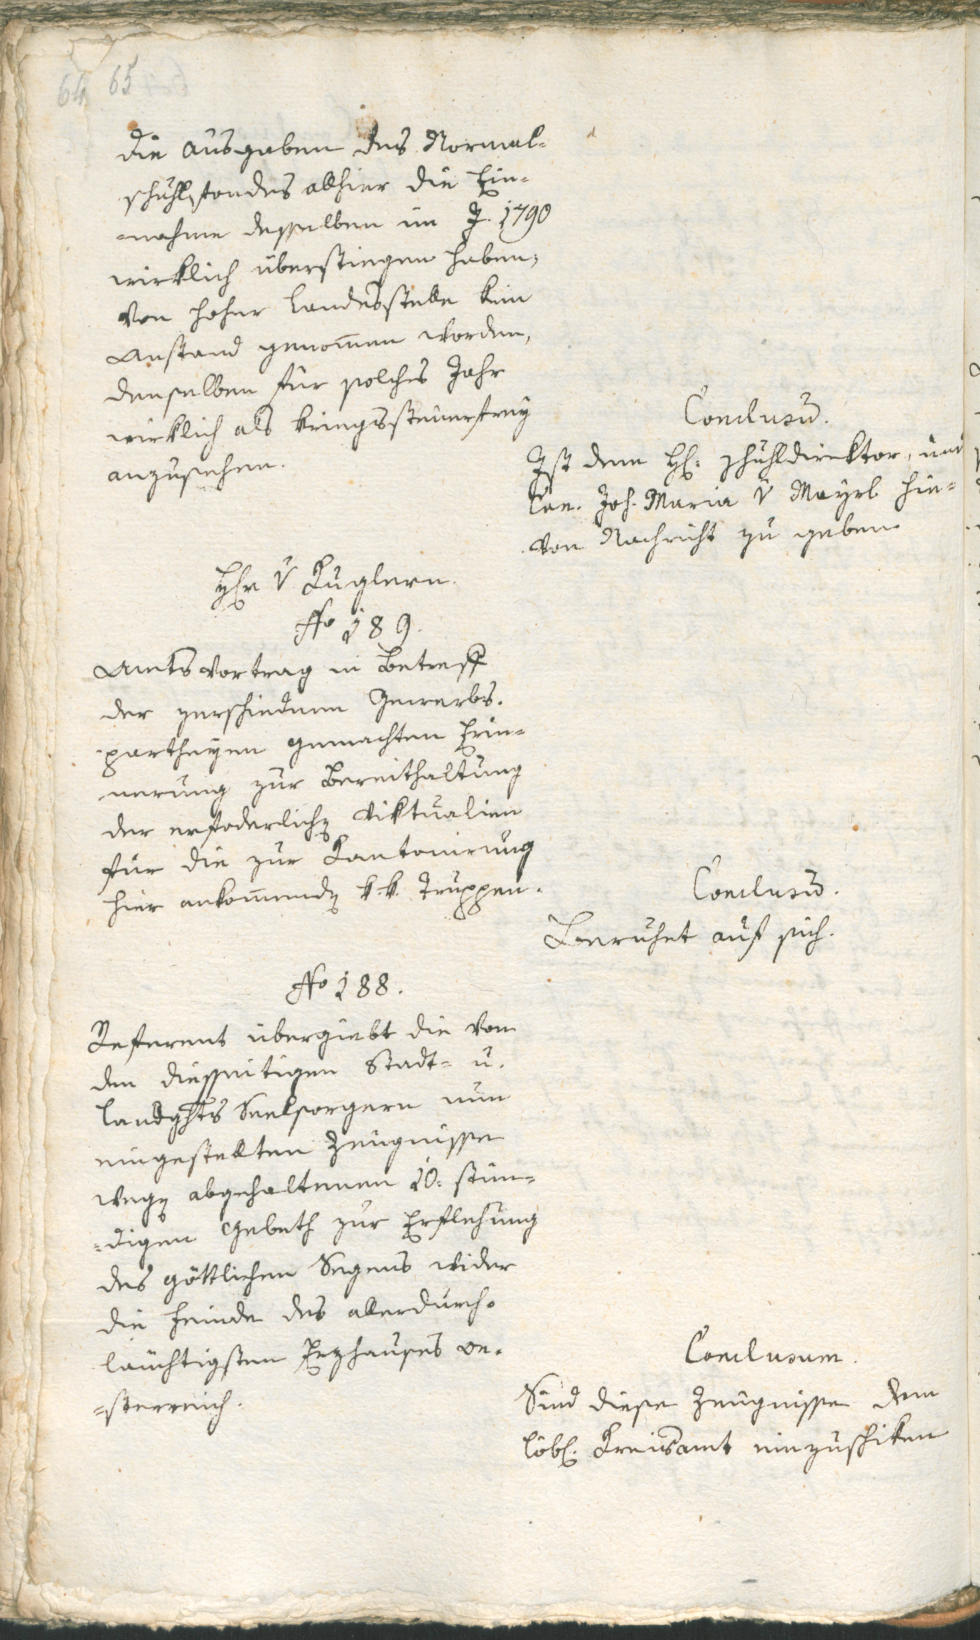 64 65
die Ausgaben des Normal-
schuhlfondes allhier die Ein-
-nahme desselben im J. 1790
wirklich überstiegen haben,
von hoher Landesstelle kein
Anstand genom̄en worden,
denselben für solches Jahr
wirklich als kriegssteuerfrey
anzusehen.
Conclusū.
Ist dem H: Schuhldirektor, und
Can. Joh. Maria v Mayrl hie-
von Nachricht zu geben
Hr v Kuglern.
No 189.
Amtsvortrag in Betreff
der verschiedenen Gewerbs-
partheyen gemachten Erin-
nerung zur Bereithaltung
der erfoderlichen Viktualien
für die zur Kantonirung
hier ankom̄enden k.k. Truppen.
Conclusū.
Beruhet auf sich.
No 188.
Referent übergiebt die von
den diesseitigen Stadt- u.
Landghts Seelsorgern nun
eingestellten Zeugnisse
wegen abgehaltenen 10. stün-
-digen Gebeth zur Erflehung
des göttlichen Segens wider
die Feinde des allerdurch-
läuchtigsten Erzhauses Oe-
-sterreich.
Conclusum.
Sind diese Zeugnisse dem
löbl. Kreisamt einzuschiken